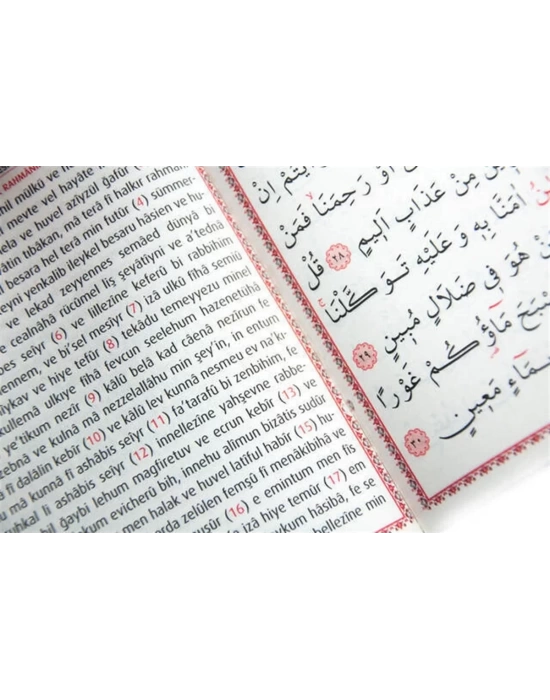 RAHMAN
mülkü ve
mevte vel hayâte
ve huvel azîyzül ğafûr
tıbâkan, mâ terâ fî halkır rahmân
besara hel terâ min futûr (4) sümmer-
yenkalib ileykel besaru hâsien ve hu-
ve lekad zeyyennes semâed dünyâ bi
ve cealnâhâ rücûmel liş şeyâtiyni ve a'tednâ
seiyr (6) ve lillezîne keferû bi rabbihim
ve bi'sel mesîyr (7) izâ ulkû fîhâ semiû
ve hiye tefûr (8) tekâdu temeyyezu minel
kullemâ ulkıye fîhâ fevcun seelehum hazenetühâ
e'tikum nezîr (9) kâlû belâ kad câenâ nezîrun fe
zebnâ ve kulnâ mâ nezzelallâhu min şey'in, in entum
fî dalâlin kebîr (10) ve kâlû lev kunnâ nesmeu ev na'k-
mâ kunnâ fî ashâbis seiyr (11) fa'tarafû bi zenbihim, fe
li ashâbis seiyr (12) innellezîne yahşevne rabbe-
bil ğaybi lehum mağfiretuv ve ecrun kebîr (13) ve
evicherû bih, innehu alîmun bizâtis sudûr
men halak ve huvel latîful habîr (15) hu-
zelûlen femşû fî menâkibihâ ve
(16) e emintum men fis
izâ hiye temûr (17) em
hâsibâ, fe se
bellezîne min
اِنْ
اَوْ رَحِمَنَا فَمَنْ
مِنْ عَذَابٍ اَلِيمٍ ٢٨ قُلْ
اٰمَنَّا بِهِ وَعَلَيْهِ تَوَكَّلْنَا
هُوَ فِي ضَلَالٍ مُبِينٍ ٢٩
مَاؤُكُمْ غَوْرًا
مَعِينٍ ٣٠